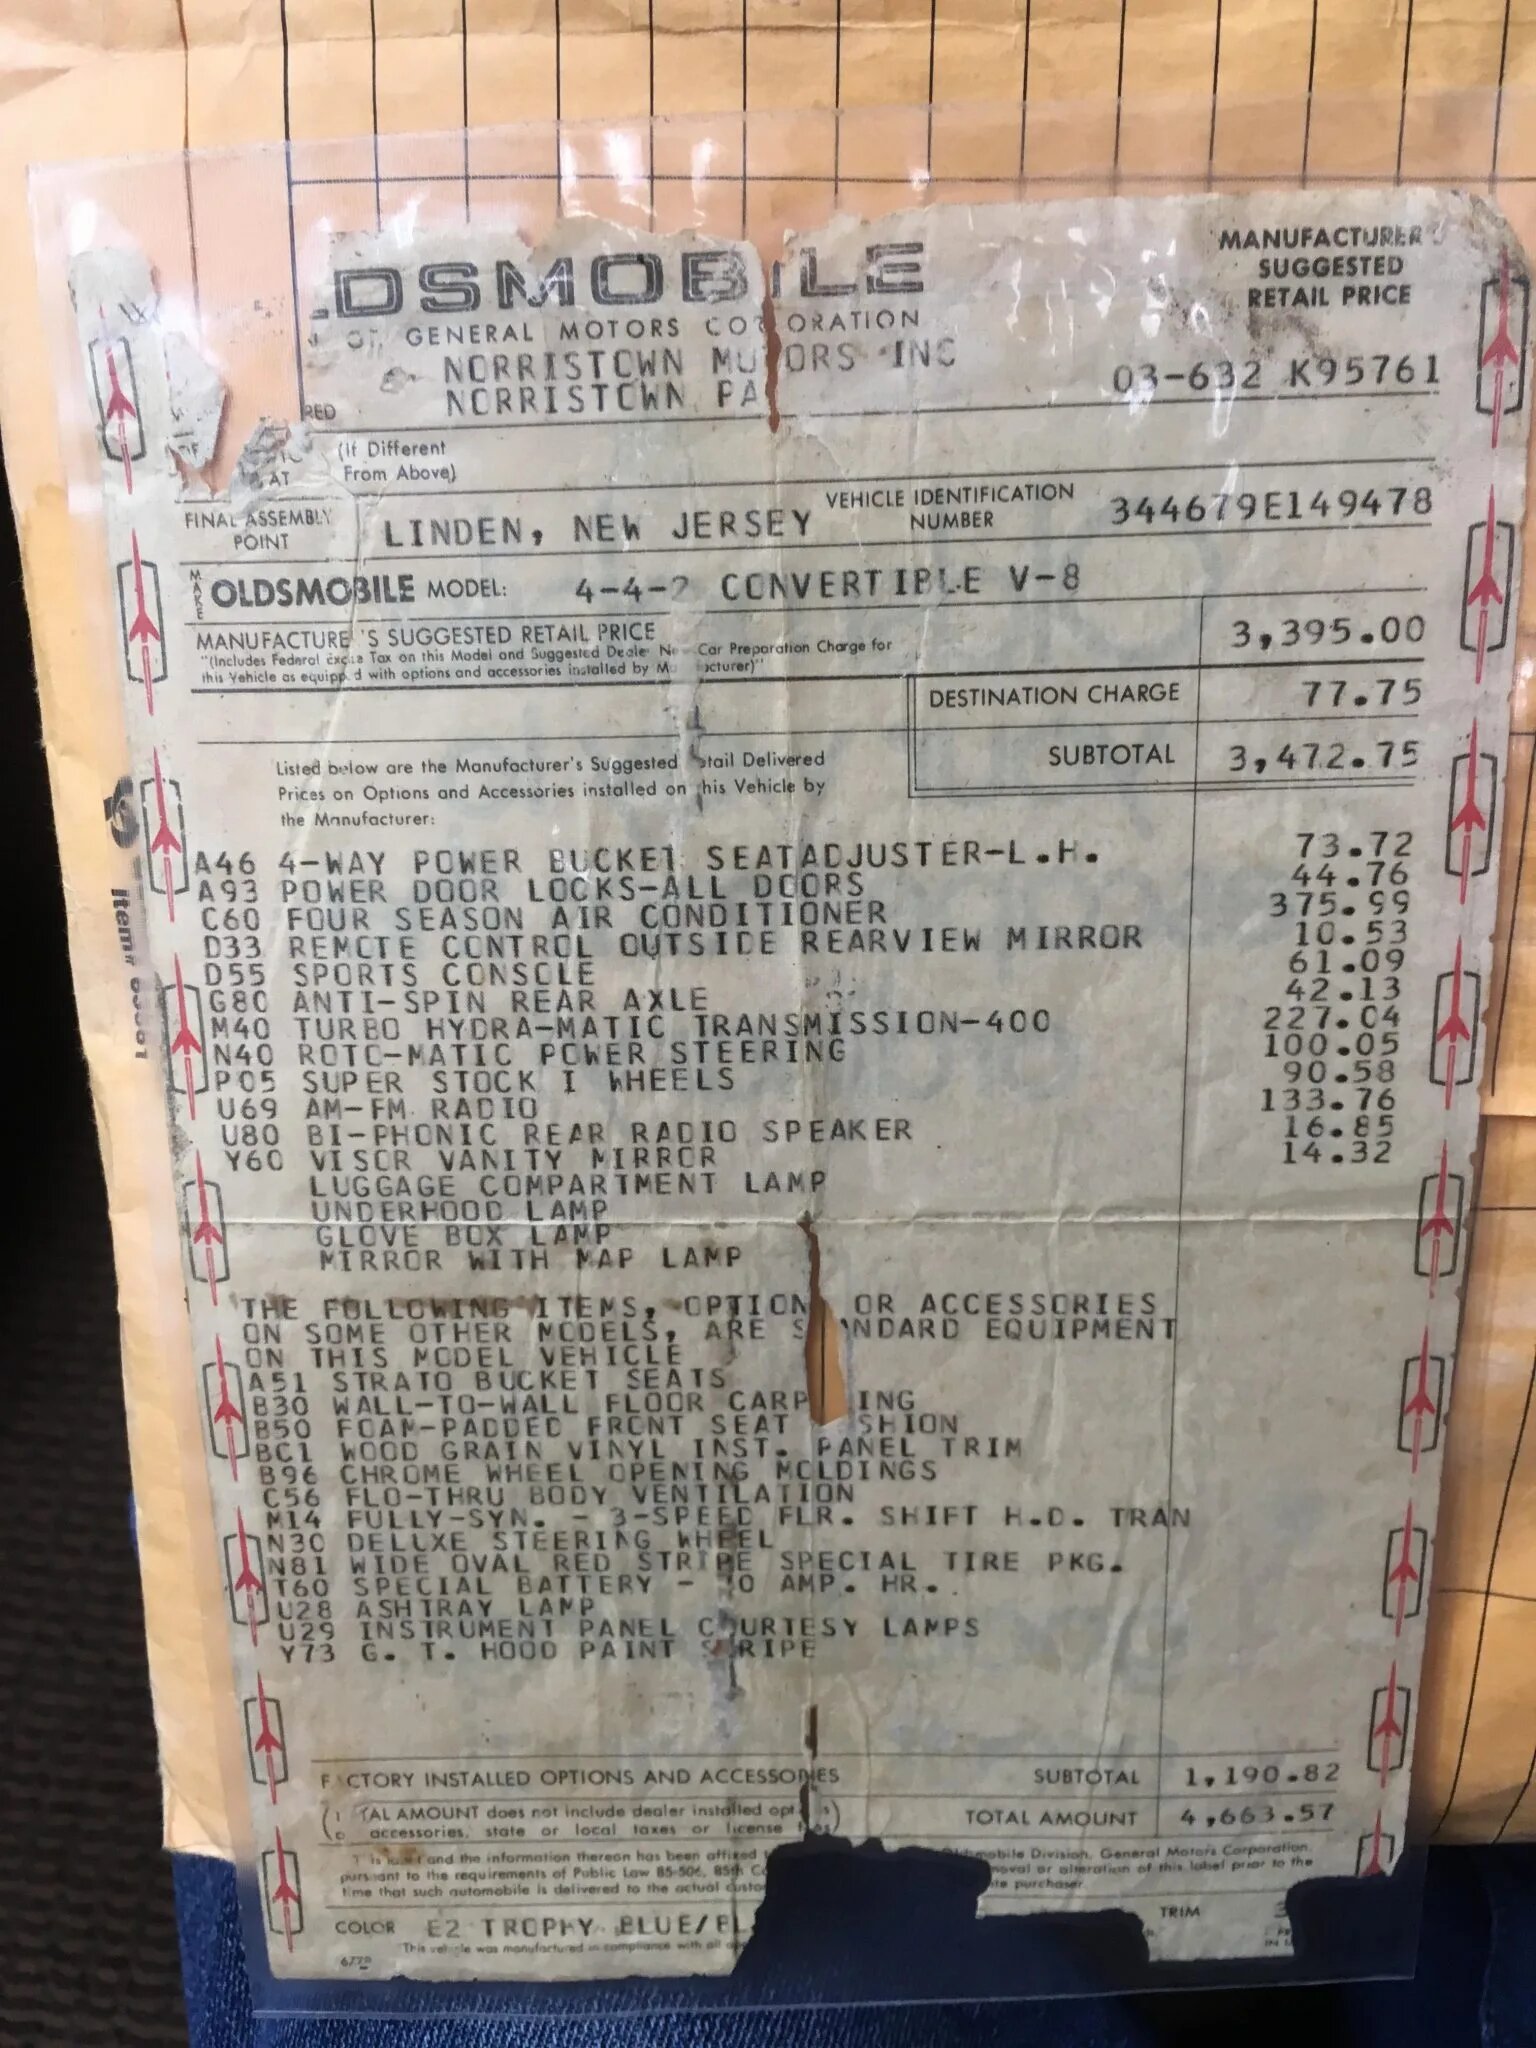 LDSMOBILE
GENERAL MOTORS CORPORATION
NORRISTOWN MOTORS INC
NORRISTOWN PA
MANUFACTURER'S
SUGGESTED
RETAIL PRICE
03-632 K95761
RED
(If Different
From Above)
AT
FINAL ASSEMBLY
POINT
LINDEN, NEW JERSEY
VEHICLE IDENTIFICATION
NUMBER
344679E149478
MAKE OLDSMOBILE MODEL: 4-4-2 CONVERTIBLE V-8
MANUFACTURE 'S SUGGESTED RETAIL PRICE 3,395.00
"(Includes Federal Excise Tax on this Model and Suggested Dealer New Car Preparation Charge for
this Vehicle as equipp d with options and accessories installed by M acturer)"
DESTINATION CHARGE 77.75
SUBTOTAL 3,472.75
Listed below are the Manufacturer's Suggested etail Delivered
Prices on Options and Accessories installed on this Vehicle by
the Manufacturer:
A46 4-WAY POWER BUCKET SEATADJUSTER-L.H. 73.72
A93 POWER DOOR LOCKS-ALL DOORS 44.76
C60 FOUR SEASON AIR CONDITIONER 375.99
D33 REMOTE CONTROL OUTSIDE REARVIEW MIRROR 10.53
D55 SPORTS CONSOLE 61.09
G80 ANTI-SPIN REAR AXLE 42.13
M40 TURBO HYDRA-MATIC TRANSMISSION-400 227.04
N40 ROTO-MATIC POWER STEERING 100.05
P05 SUPER STOCK I WHEELS 90.58
U69 AM-FM RADIO 133.76
U80 BI-PHONIC REAR RADIO SPEAKER 16.85
Y60 VISOR VANITY MIRROR 14.32
LUGGAGE COMPARTMENT LAMP
UNDERHOOD LAMP
GLOVE BOX LAMP
MIRROR WITH MAP LAMP
THE FOLLOWING ITEMS, OPTION OR ACCESSORIES
ON SOME OTHER MODELS, ARE S ANDARD EQUIPMENT
ON THIS MODEL VEHICLE
A51 STRATO BUCKET SEATS
B30 WALL-TO-WALL FLOOR CARP ING
B50 FOAM-PADDED FRONT SEAT SHION
BC1 WOOD GRAIN VINYL INST. PANEL TRIM
B96 CHROME WHEEL OPENING MOLDINGS
C56 FLO-THRU BODY VENTILATION
M14 FULLY-SYN. - 3-SPEED FLR. SHIFT H.D. TRAN
N30 DELUXE STEERING WHEEL
N81 WIDE OVAL RED STRIPE SPECIAL TIRE PKG.
T60 SPECIAL BATTERY - 0 AMP. HR..
U28 ASHTRAY LAMP
U29 INSTRUMENT PANEL COURTESY LAMPS
Y73 G. T. HOOD PAINT STRIPE
FACTORY INSTALLED OPTIONS AND ACCESSORIES SUBTOTAL 1,190.82
( TAL AMOUNT does not include dealer installed opt s
accessories, state or local taxes or license fees) TOTAL AMOUNT 4,663.57
This label and the information thereon has been affixed Oldsmobile Division, General Motors Corporation,
pursuant to the requirements of Public Law 85-506, 85th Co moval or alteration of this label prior to the
time that such automobile is delivered to the actual custo te purchaser.
COLOR E2 TROPHY BLUE/BL TRIM 3
This vehicle was manufactured in compliance with all
Item#